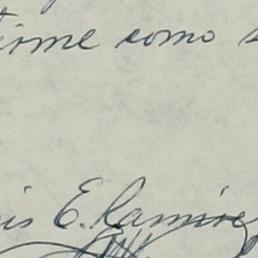 irme como s
is E. Ramire